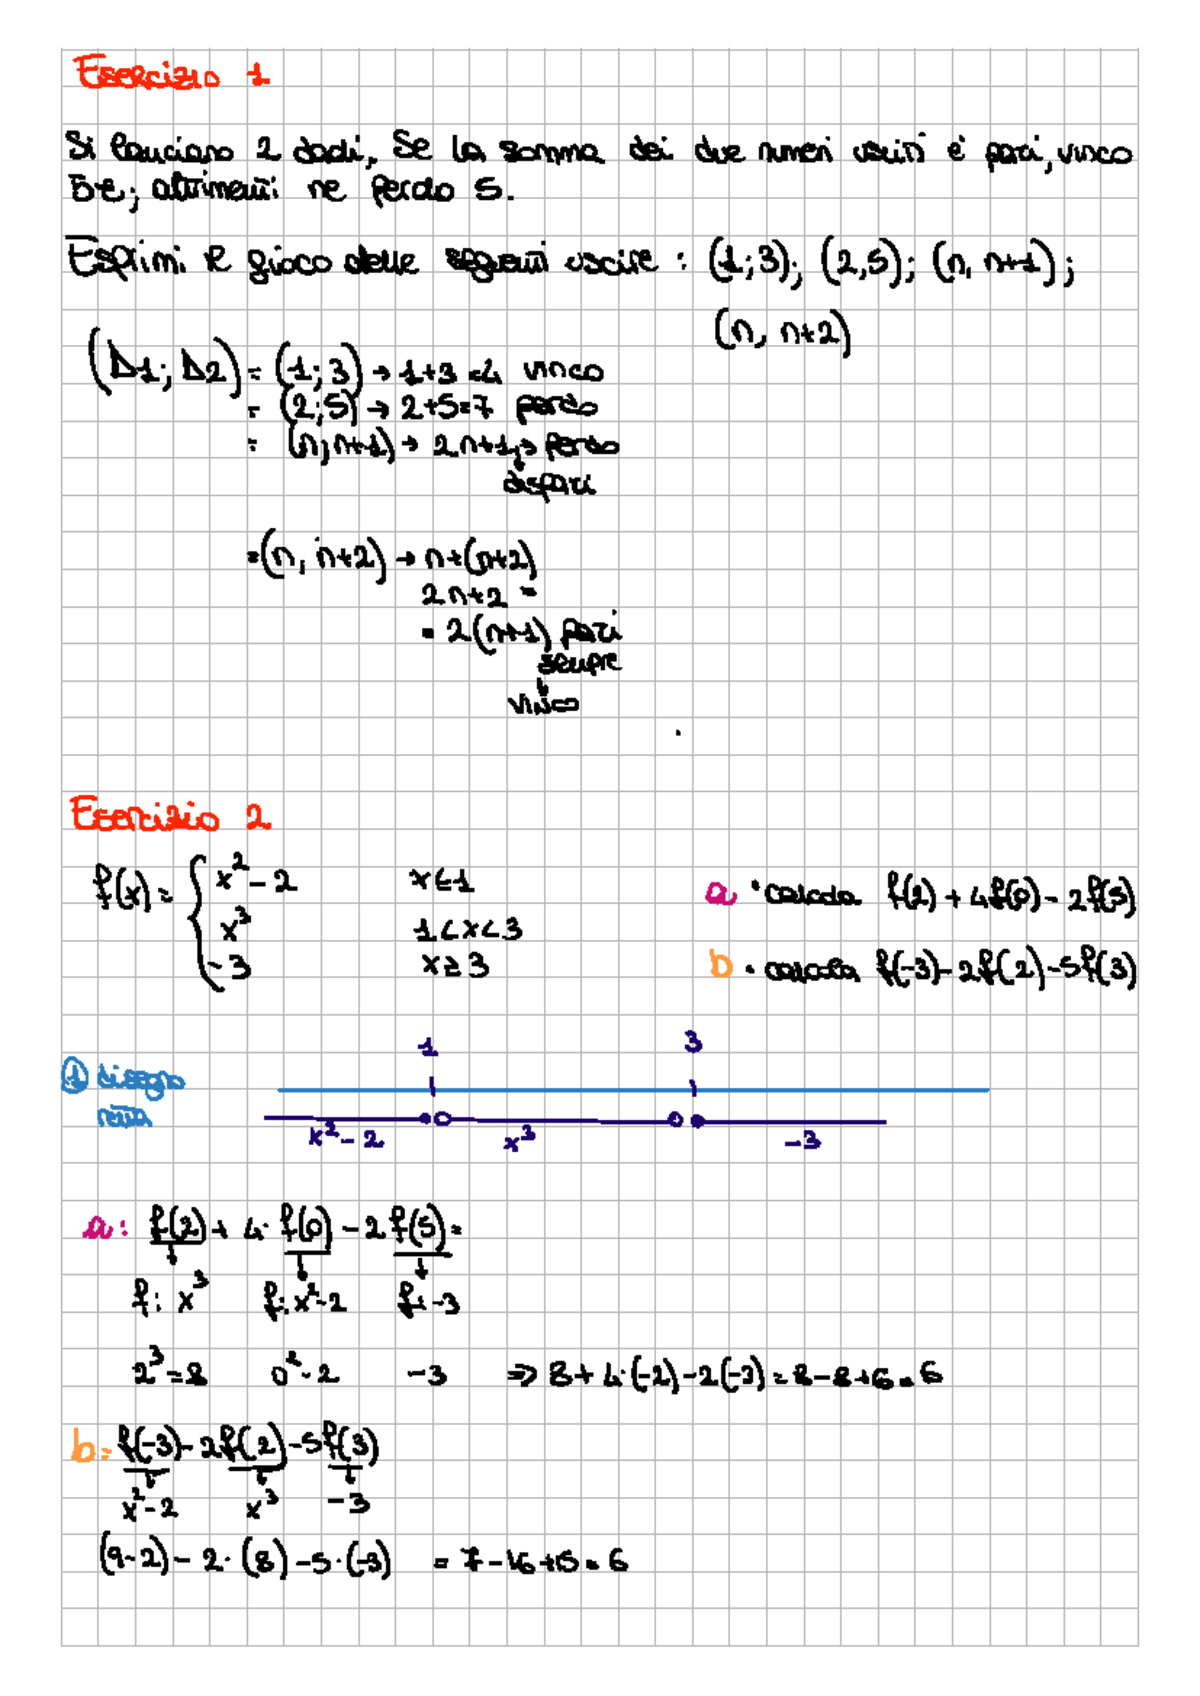 Esercizio 1
Si lanciano 2 dadi, Se la somma dei due numeri usciti è pari, vinco
5€; altrimenti ne perdo 5.
Esprimi il gioco delle seguenti uscite : (1;3); (2,5); (n, n+1);
(n, n+2)
(D1; D2) = (1; 3) → 1+3=4 vinco
= (2;5) → 2+5=7 perdo
= (n;n+1) → 2n+1 → perdo
↓ dispari
=(n, n+2) → n+(n+2)
2n+2 =
= 2(n+1) pari
sempre
↓
vinco
Esercizio 2
f(x)= { x² - 2 x≤1
x³ 1<x<3
-3 x≥3
a • calcola f(2) + 4f(0) - 2f(5)
b • calcola f(-3) - 2f(2) - 5f(3)
1 3
① disegno
retta
x²-2 x³ -3
a: f(2) + 4· f(0) - 2 f(5) =
↓ ↓ ↓
f: x³ f: x²-2 f: -3
2³=8 0²-2 -3 ⇒ 8+4·(-2)-2(-3)=8-8+6=6
b= f(-3) - 2f(2) - 5f(3)
↓ ↓ ↓
x²-2 x³ -3
(9-2) - 2· (8) - 5·(-3) = 7-16+15=6